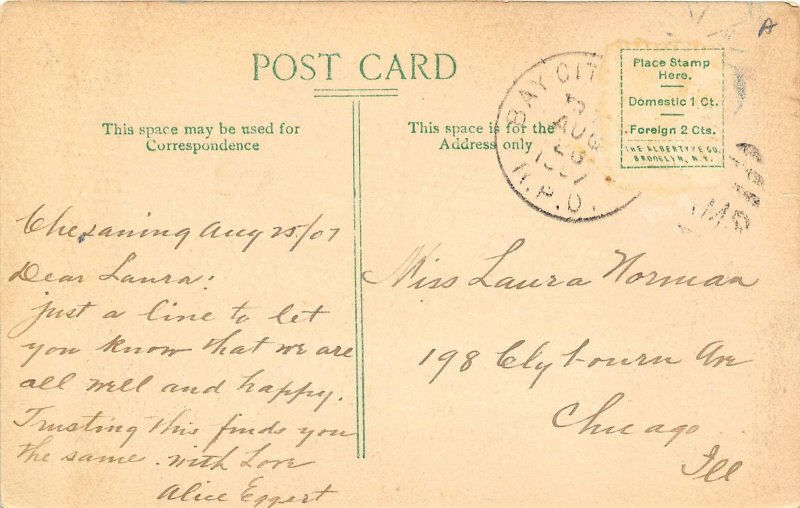 A
POST CARD
This space may be used for
Correspondence
This space is for the
Address only
Place Stamp
Here.
Domestic 1 Ct.
Foreign 2 Cts.
THE ALBERTYPE CO.
BROOKLYN, N.Y.
BAY CIT
AUG
26
1907
R.P.O.
Chesaning Aug 25/07
Dear Laura:
just a line to let
you know that we are
all well and happy.
Trusting this finds you
the same. with Love
Alice Eggert
Miss Laura Norman
198 Clybourn Ave
Chicago
Ill